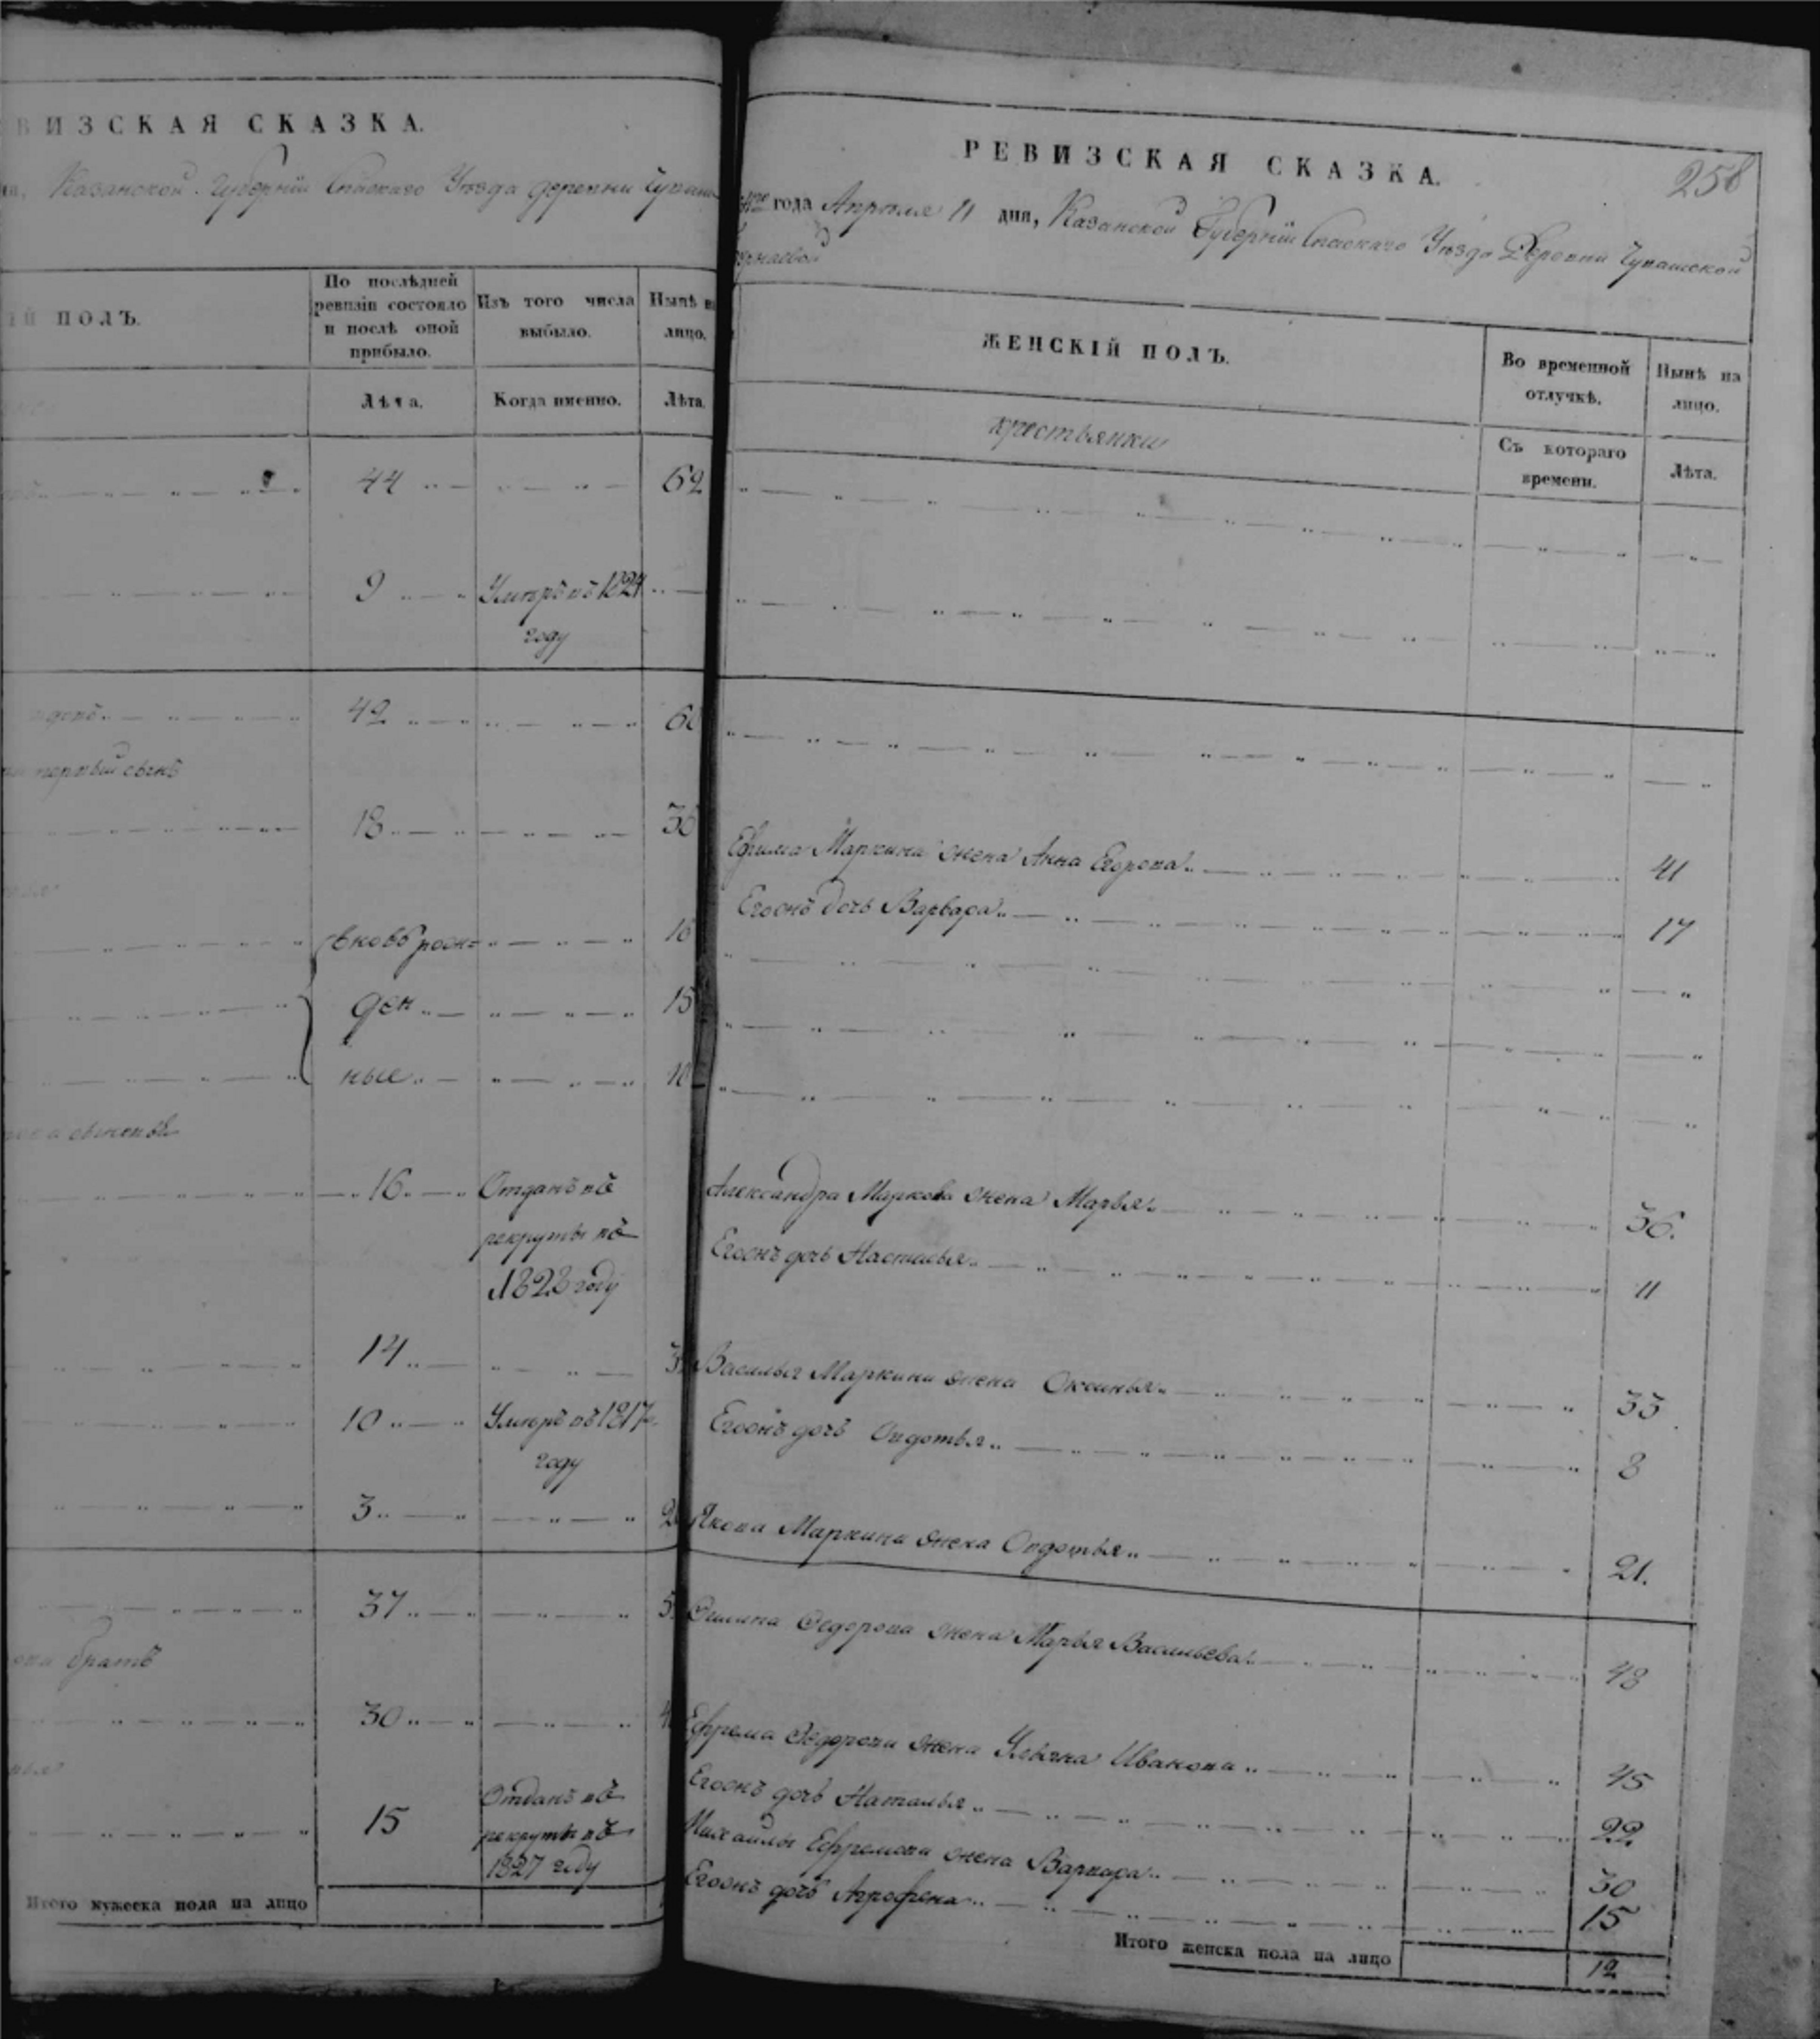 ВИЗСКАЯ СКАЗКА.
Казанской Губерніи Спаскаго Уѣзда деревни
ІЙ ПОЛЪ.
По послѣдней ревизіи состояло и послѣ оной прибыло.
Изъ того числа выбыло.
Нынѣ
лицо.
Лѣта.
Когда именно.
Лѣта.
44
62
9
Умеръ въ 1824
году
42
60
первый сынъ
18
36
вновь рож=
16
ден
15
ные
10
16
Отданъ въ
рекруты въ
1828 году
14
3
10
Умеръ въ 1817
году
3
2
37
5
братъ
30
4
15
Отданъ въ
рекруты въ
1827 году
Итого мужеска пола на лицо
РЕВИЗСКАЯ СКАЗКА.
258
года Апреля 11 дня, Казанской Губерніи Спаскаго Уѣзда Деревни Чувашской
ЖЕНСКІЙ ПОЛЪ.
Во временной отлучкѣ.
Нынѣ на лицо.
крестьянки
Съ котораго времени.
Лѣта.
Ефима Маркина жена Анна Егорова 41
Егожъ дочь Варвара 17
Александра Маркова жена Марья 36.
Егожъ дочь Настасья 11
Василья Маркина жена Оксинья 33
Егожъ дочь Овдотья 8
Якова Маркина жена Овдотья 21.
Федорова жена Марья Васильева 48
Ефрема Федорова жена Ульяна Иванова 45
Егожъ дочь Наталья 22
Михайлы Ефремова жена Варвара 30
Егожъ дочь Агрофена 15
Итого женска пола на лицо 12